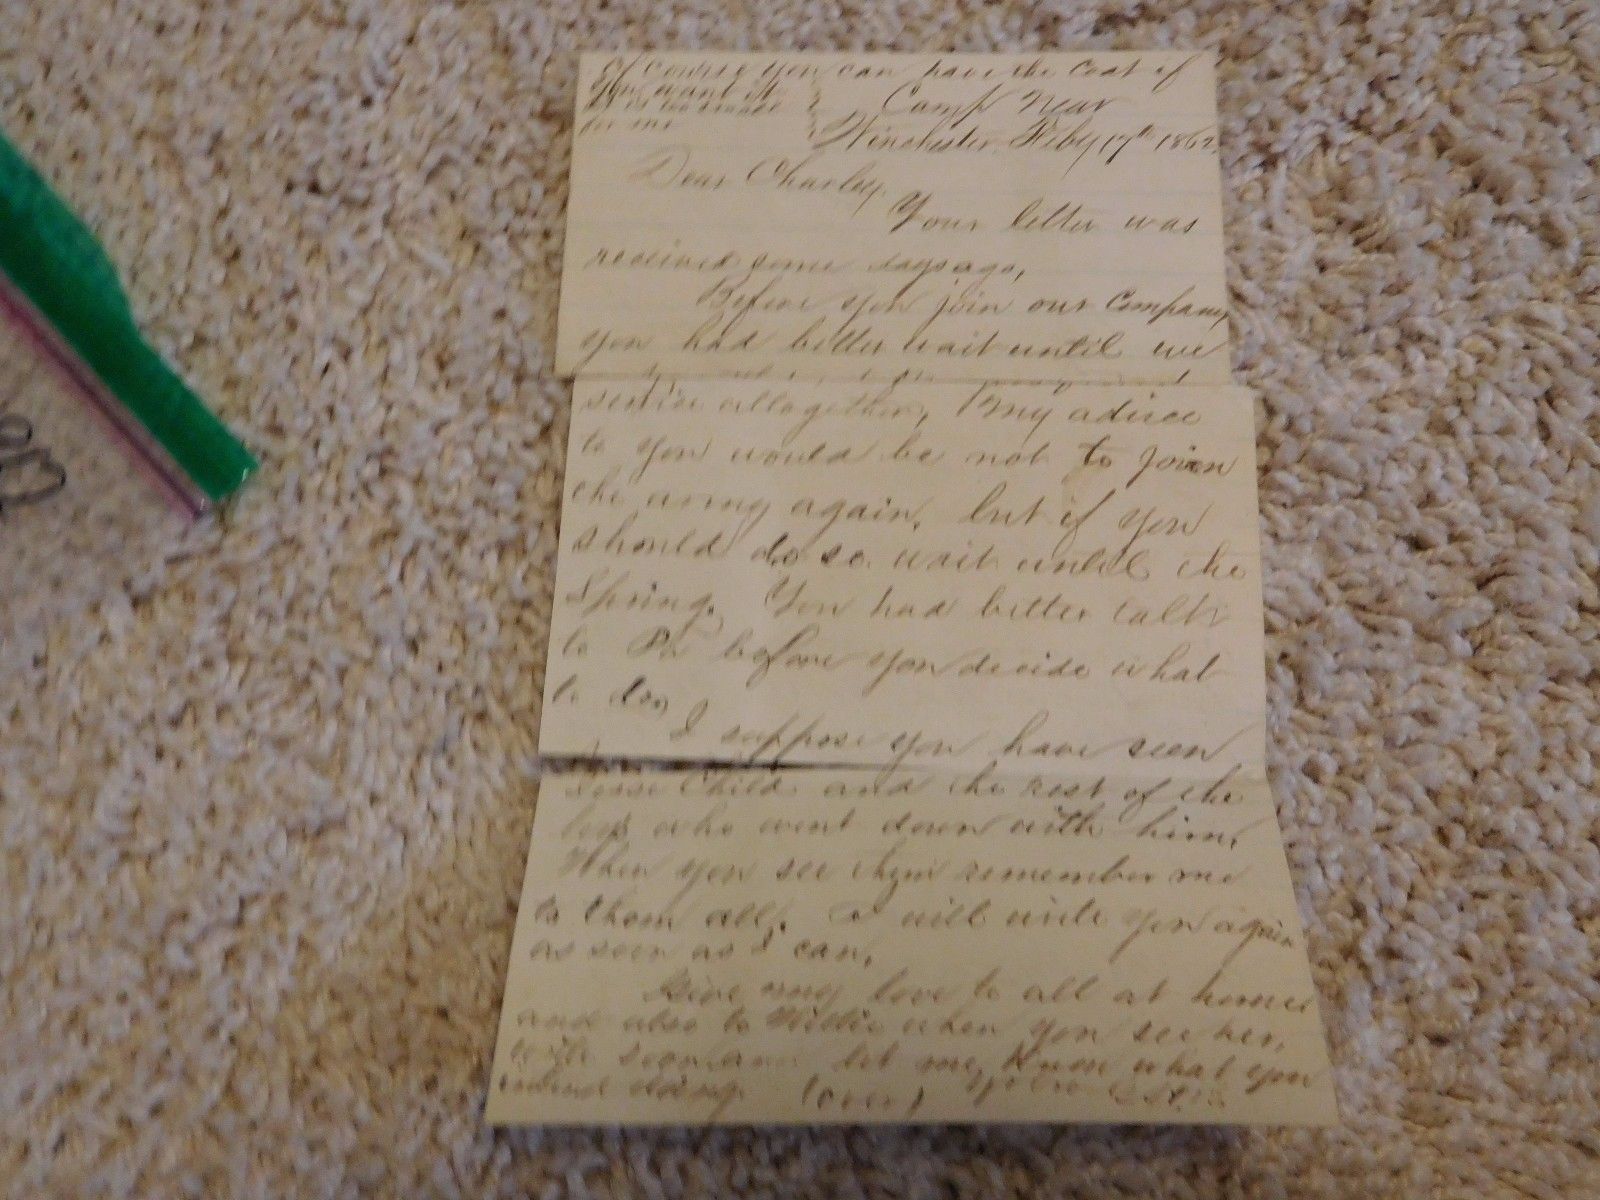 Of course you can have the coat if
you want it
it is too small
for me
Camp Near
Winchester, Feby 17th 1862.
Dear Charley,
Your letter was
received some days ago,
Before you join our Company
you had better wait until we
service alltogether, My advice
to you would be not to join
the army again, but if you
should do so wait until the
Spring. You had better talk
to Pa before you decide what
to do,
I suppose you have seen
Jesse Child and the rest of the
boys who went down with him,
When you see them remember me
to them all. I will write you again
as soon as I can,
Give my love to all at home
and also to Willie when you see her,
write soon and let me know what you
intend doing (over)